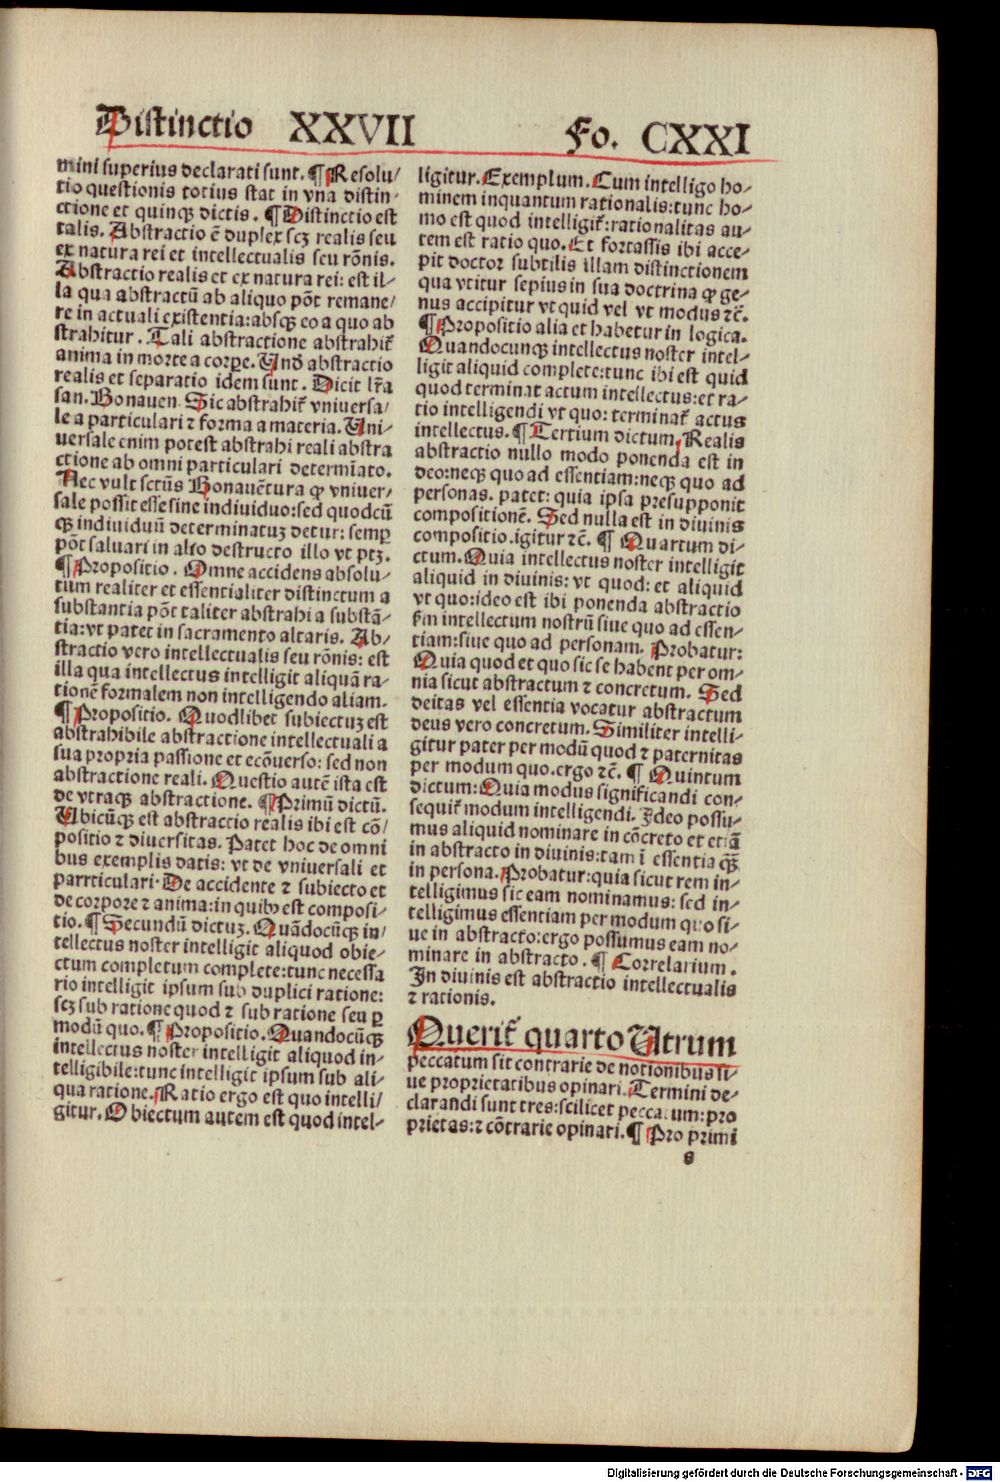 Distinctio XXVII Fo. CXXI
mini superius declarati sunt. ¶ Resolu/
tio questionis totius stat in vna distin-
ctione et quinqꝫ dictis. ¶ Distinctio est
talis. Abstractio ē duplex scꝫ realis seu
ex natura rei et intellectualis seu rōnis.
Abstractio realis et ex natura rei: est il-
la qua abstractū ab aliquo pōt remane/
re in actuali existentia: absqꝫ eo a quo ab
strahitur. Tali abstractione abstrahit̃
anima in morte a corpe. Unď abstractio
realis et separatio idem sunt. Dicit lr̃a
san. Bonauen. Sic abstrahit̃ vniuersa/
le a particulari ⁊ forma a materia. Uni-
uersale enim potest abstrahi reali abstra
ctione ab omni particulari determīato.
Nec vult sctūs Bonauētura ꝙ vniuer-
sale possit esse sine indiuiduo: sed quodcū
qꝫ indiuiduū determinatuꝫ detur: semꝑ
pōt saluari in alio destructo illo vt ptꝫ.
¶ Propositio. Omne accidens absolu-
tum realiter et essentialiter distinctum a
substantia pōt taliter abstrahi a substā-
tia: vt patet in sacramento altaris. Ab/
stractio vero intellectualis seu rōnis: est
illa qua intellectus intelligit aliquā ra-
tionē formalem non intelligendo aliam.
¶ Propositio. Quodlibet subiectuꝫ est
abstrahibile abstractione intellectuali a
sua propria passione et ecōuerso: sed non
abstractione reali. Questio autē ista est
de vtraqꝫ abstractione. ¶ Primū dictū.
Ubicūqꝫ est abstractio realis ibi est cō/
positio ⁊ diuersitas. Patet hoc de omni
bus exemplis datis: vt de vniuersali et
parrticulari. De accidente ⁊ subiecto et
de corpore ⁊ anima: in quibꝫ est composi-
tio. ¶ Secundū dictuꝫ. Quādocūqꝫ in/
tellectus noster intelligit aliquod obie-
ctum completum complete: tunc necessa
rio intelligit ipsum sub duplici ratione:
scꝫ sub ratione quod ⁊ sub ratione seu ꝑ
modū quo. ¶ Propositio. Quandocūqꝫ
intellectus noster intelligit aliquod in-
telligibile: tunc intelligit ipsum sub ali-
qua ratione. Ratio ergo est quo intelli/
gitur. Obiectum autem est quod intel-
ligitur. Exemplum. Cum intelligo ho-
minem inquantum rationalis: tunc ho-
mo est quod intelligit̃: rationalitas au-
tem est ratio quo. Et fortassis ibi acce-
pit doctor subtilis illam distinctionem
qua vtitur sepius in sua doctrina ꝙ ge-
nus accipitur vt quid vel vt modus ⁊c̃.
¶ Propositio alia et habetur in logica.
Quandocunqꝫ intellectus noster intel-
ligit aliquid complete: tunc ibi est quid
quod terminat actum intellectus: et ra-
tio intelligendi vt quo: terminat̃ actus
intellectus. ¶ Tertium dictum. Realis
abstractio nullo modo ponenda est in
deo: neqꝫ quo ad essentiam: neqꝫ quo ad
personas. patet: quia ipsa presupponit
compositionē. Sed nulla est in diuinis
compositio. igitur ⁊c̃. ¶ Quartum di-
ctum. Quia intellectus noster intelligit
aliquid in diuinis: vt quod: et aliquid
vt quo: ideo est ibi ponenda abstractio
ẜm intellectum nostrū siue quo ad essen-
tiam: siue quo ad personam. Probatur:
Quia quod et quo sic se habent per om-
nia sicut abstractum ⁊ concretum. Sed
deitas vel essentia vocatur abstractum
deus vero concretum. Similiter intelli-
gitur pater per modū quod ⁊ paternitas
per modum quo. ergo ⁊c̃. ¶ Quintum
dictum: Quia modus significandi con-
sequit̃ modum intelligendi. Ideo possu-
mus aliquid nominare in cōcreto et etiā
in abstracto in diuinis: tam ī essentia qͣꝫ
in persona. Probatur: quia sicut rem in-
telligimus sic eam nominamus: sed in-
telligimus essentiam per modum quo si-
ue in abstracto: ergo possumus eam no-
minare in abstracto. ¶ Correlarium.
In diuinis est abstractio intellectualis
⁊ rationis.
Querit̃ quarto Utrum
peccatum sit contrarie de notionibus si-
ue proprietatibus opinari. Termini de-
clarandi sunt tres: scilicet peccatum: pro
prietas: ⁊ cōtrarie opinari. ¶ Pro primi
s
Digitalisierung gefördert durch die Deutsche Forschungsgemeinschaft - DFG